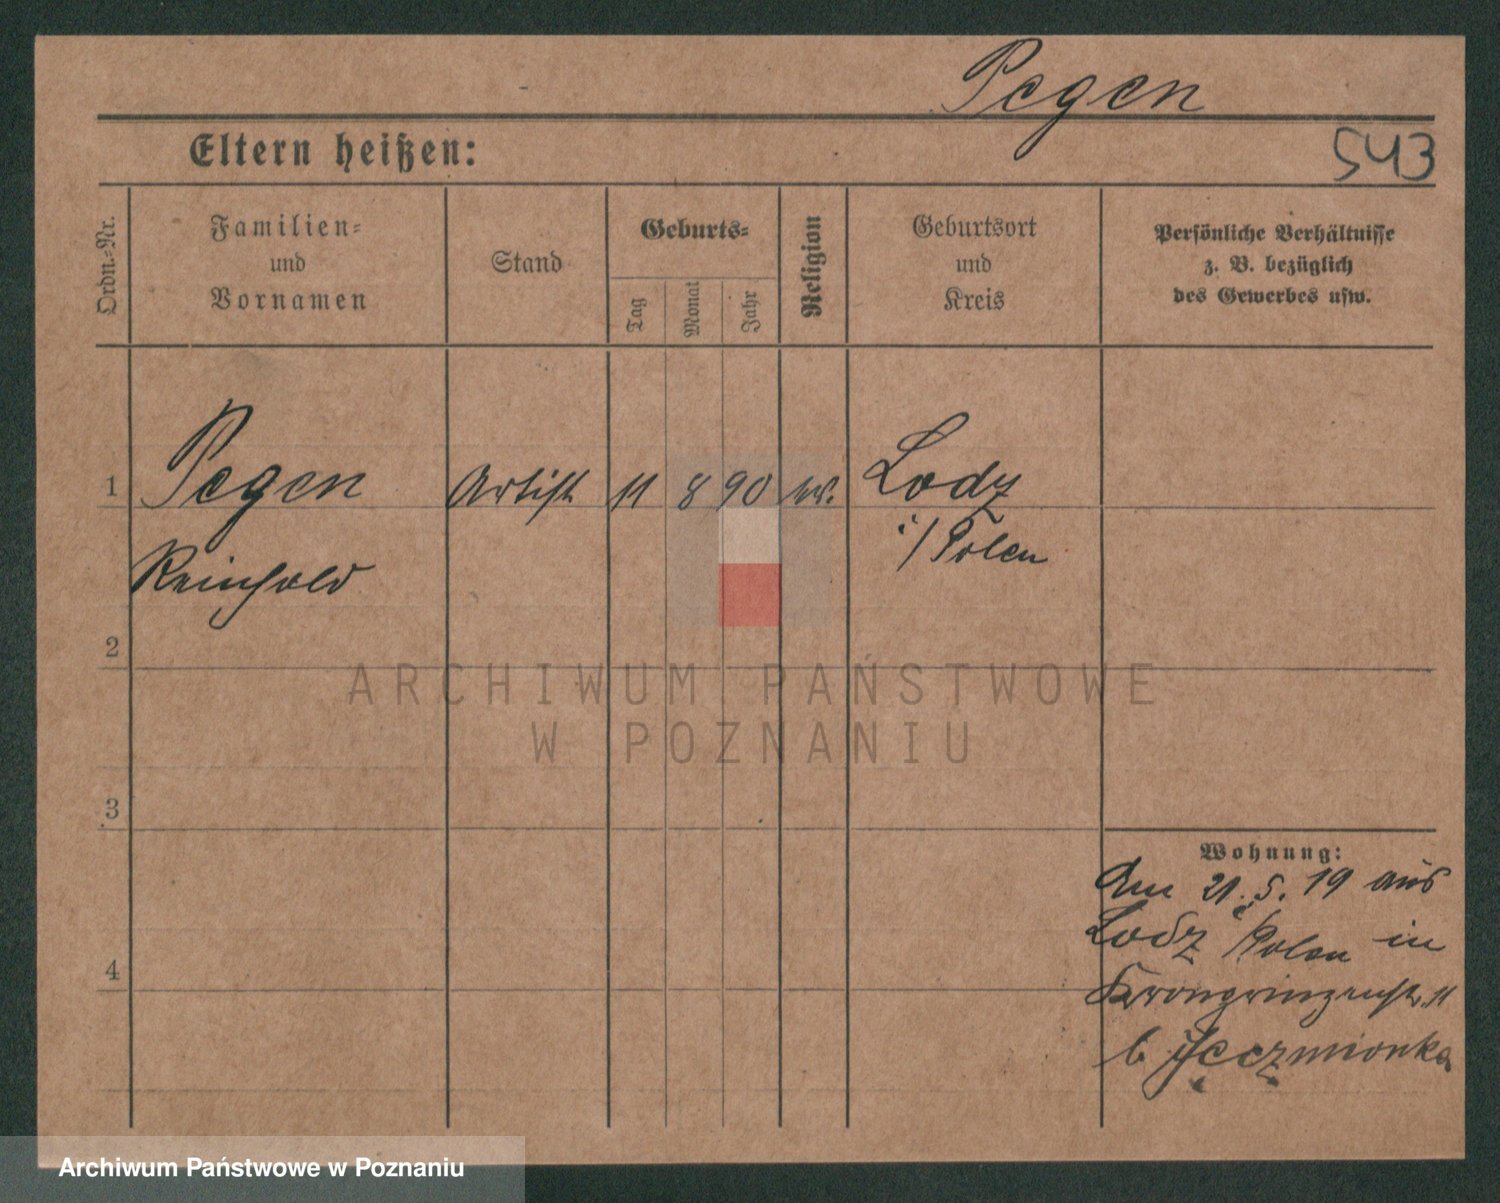 Pegen
Eltern heißen:
543
Ordn.-Nr.
Familien-
und
Vornamen
Stand
Geburts-
Tag
Monat
Jahr
Religion
Geburtsort
und
Kreis
Persönliche Verhältnisse
z. B. bezüglich
des Gewerbes usw.
1 Pegen Artist 11 8 90 ev. Lodz
Reinhold i/Polen
2
ARCHIWUM PAŃSTWOWE
W POZNANIU
3
Wohnung:
Am 21.5.19 aus
Lodz i/Polen in
4
Kronprinzenstr. 11
b Jeczmionka
Archiwum Państwowe w Poznaniu